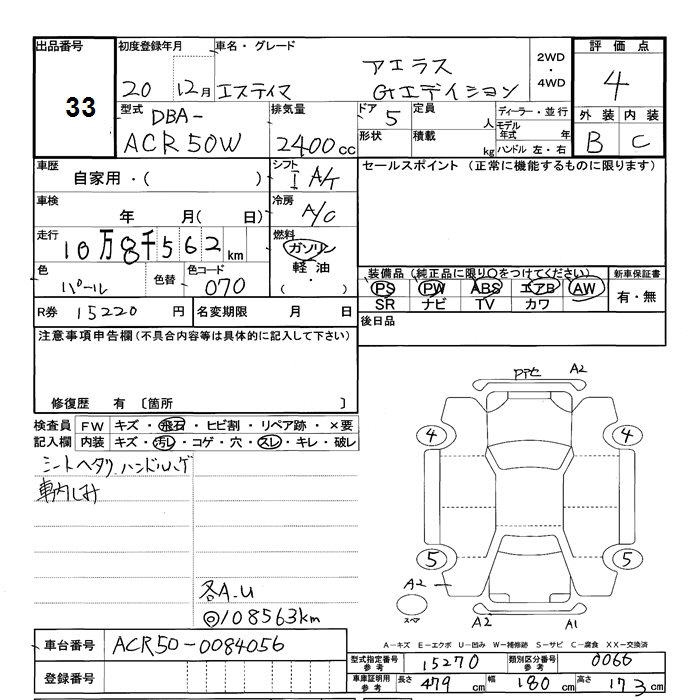 出品番号 初度登録年月 車名・グレード 評価点
33
20 12月 エスティマ アエラス Gエディション 2WD・4WD 4
型式 DBA- 排気量 ドア 5 定員 人 ディーラー・並行 外装 内装
ACR50W 2400cc 形状 積載 kg モデル年式 年 B C
ハンドル 左・右
車歴 シフト セールスポイント (正常に機能するものに限ります)
自家用・( ) I A/T
車検 冷房
年 月( 日) A/C
走行 燃料
10万8千562km ガソリン
軽油
・
( )
色 色替 色コード
パール 070
装備品 (純正品に限り○をつけてください) 新車保証書
PS PW ABS エアB AW 有・無
SR ナビ TV カワ
R券 15220円 名変期限 月 日 後日品
注意事項申告欄(不具合内容等は具体的に記入して下さい)
修復歴 有 〔箇所 〕
検査員 FW キズ・飛石・ヒビ割・リペア跡・×要
記入欄 内装 キズ・汚レ・コゲ・穴・スレ・キレ・破レ
シートヘタリ、ハンドルハゲ
車内しみ
各A.U
◎108563km
A2
4 4
5 5
A2
スペア A2 A1
A-キズ E-エクボ U-凹み W-補修跡 S-サビ C-腐食 XX-交換済
車台番号 ACR50-0084056
登録番号
型式指定番号 参考 15270 類別区分番号 参考 0066
車庫証明用 参考 長さ 479cm 幅 180cm 高さ 173cm